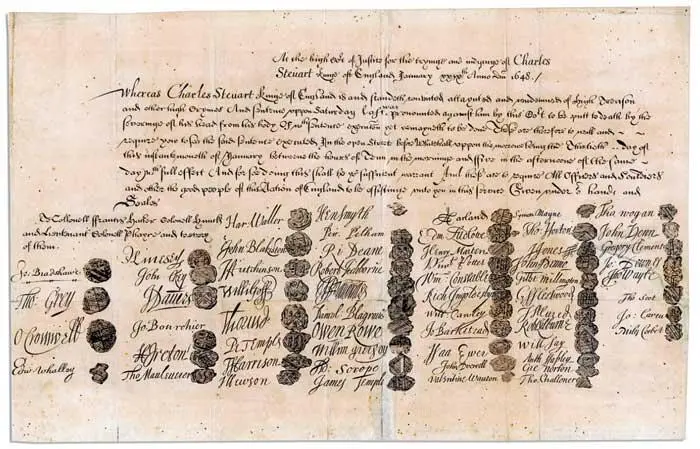 At the high Cort of Justice for the tryinge and iudginge of Charles
Steuart Kinge of England January xxixth Anno Dni 1648./
Whereas Charles Steuart Kinge of England is and standeth convicted attaynted and condemned of High Treason
and other high Crymes And sentence uppon Saturday last was pronounced against him by this Cort to be putt to death by the
severinge of his head from his body Of wch sentence execucon yet remayneth to be done These are therefore to will and
require you to see the said sentence executed In the open Streete before Whitehall uppon the morrowe being the Thirtieth day of
this instante moneth of January betweene the houres of Tenn in the morninge and ffive in the afternoone of the same
day wth full effect And for soe doing this shall be yor sufficient warrant And these are to require All Officers and Souldiers
and other the good people of this Nation of England to be assistinge unto you in this service Given under our hands and
Seales
To Collonell ffrancis Hacker Colonell Huncks
and Lieutenant Colonell Phayre and to every
of them.
Jo: Bradshawe
Tho: Grey
O Cromwell
Edw Whalley
M Livesey
John Okey
J Danvers
Jo Bourchier
H Ireton
Tho Mauleverer
Har Waller
John Blakiston
J Hutchinson
Willi Goff
P Temple
T Harrison
J Hewson
Hen Smyth
Per Pelham
Ri Deane
Robert Tichborne
Daniel Blagrave
Owen Rowe
William Purefoy
Ad Scrope
James Temple
A Garland
Edm Ludlowe
Henry Marten
Vinct Potter
Wm Constable
Rich Ingoldesby
Will Cawley
Jo Barkstead
Isaa Ewer
John Dixwell
Valentine Wauton
Symon Mayne
Tho Horton
J Jones
John Moore
Gilbt Millington
G Fleetwood
J Alured
Robt Lilburne
Will Say
Anth Stapley
Gre Norton
Tho Challoner
Tho Wogan
John Venn
Gregory Clement
Jo Downes
Tho Wayte
Tho Scot
Jo Carew
Miles Corbet